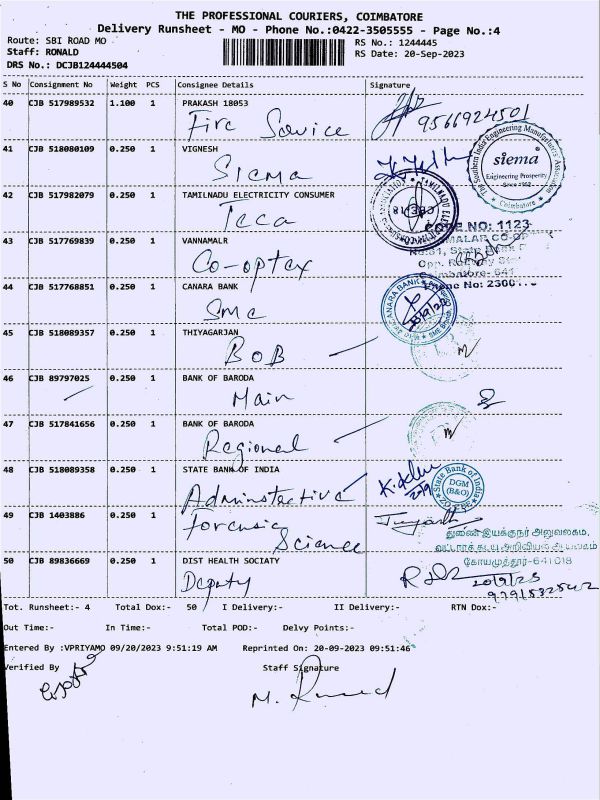 THE PROFESSIONAL COURIERS, COIMBATORE
Delivery Runsheet - MO - Phone No.:0422-3505555 - Page No.:4
Route: SBI ROAD MO
RS No.: 1244445
Staff: RONALD
RS Date: 20-Sep-2023
DRS No.: DCJB124444504
S No Consignment No Weight PCS Consignee Details Signature
40 CJB 517989532 1.100 1 PRAKASH 18053
Fire Service 9566924501
41 CJB 518080109 0.250 1 VIGNESH
SIEMA
The Southern India Engineering Manufacturers Association
siema
Engineering Prosperity
Since 1952
Coimbatore
42 CJB 517982079 0.250 1 TAMILNADU ELECTRICITY CONSUMER
Teca
CBE-18
CODE NO: 1123
43 CJB 517769839 0.250 1 VANNAMALR
Co-optex
Coimbatore-641
Phone No: 2300
44 CJB 517768851 0.250 1 CANARA BANK
SME
CANARA BANK
20/9/23
45 CJB 518089357 0.250 1 THIYAGARJAN
BOB
46 CJB 89797025 0.250 1 BANK OF BARODA
Main
47 CJB 517841656 0.250 1 BANK OF BARODA
Regional
48 CJB 518089358 0.250 1 STATE BANK OF INDIA
Adminstective
20/9
State Bank of India
DGM
(B&O)
49 CJB 1403886 0.250 1
Forensic
Science
துணை இயக்குநர் அலுவலகம்,
வட்டாரத் தடய அறிவியல் ஆய்வகம்
கோயமுத்தூர்-641018
50 CJB 89836669 0.250 1 DIST HEALTH SOCIATY
Deputy
20/9/23
Tot. Runsheet:- 4 Total Dox:- 50 I Delivery:- II Delivery:- RTN Dox:-
Out Time:- In Time:- Total POD:- Delvy Points:-
Entered By :VPRIYAMO 09/20/2023 9:51:19 AM Reprinted On: 20-09-2023 09:51:46
Verified By Staff Signature